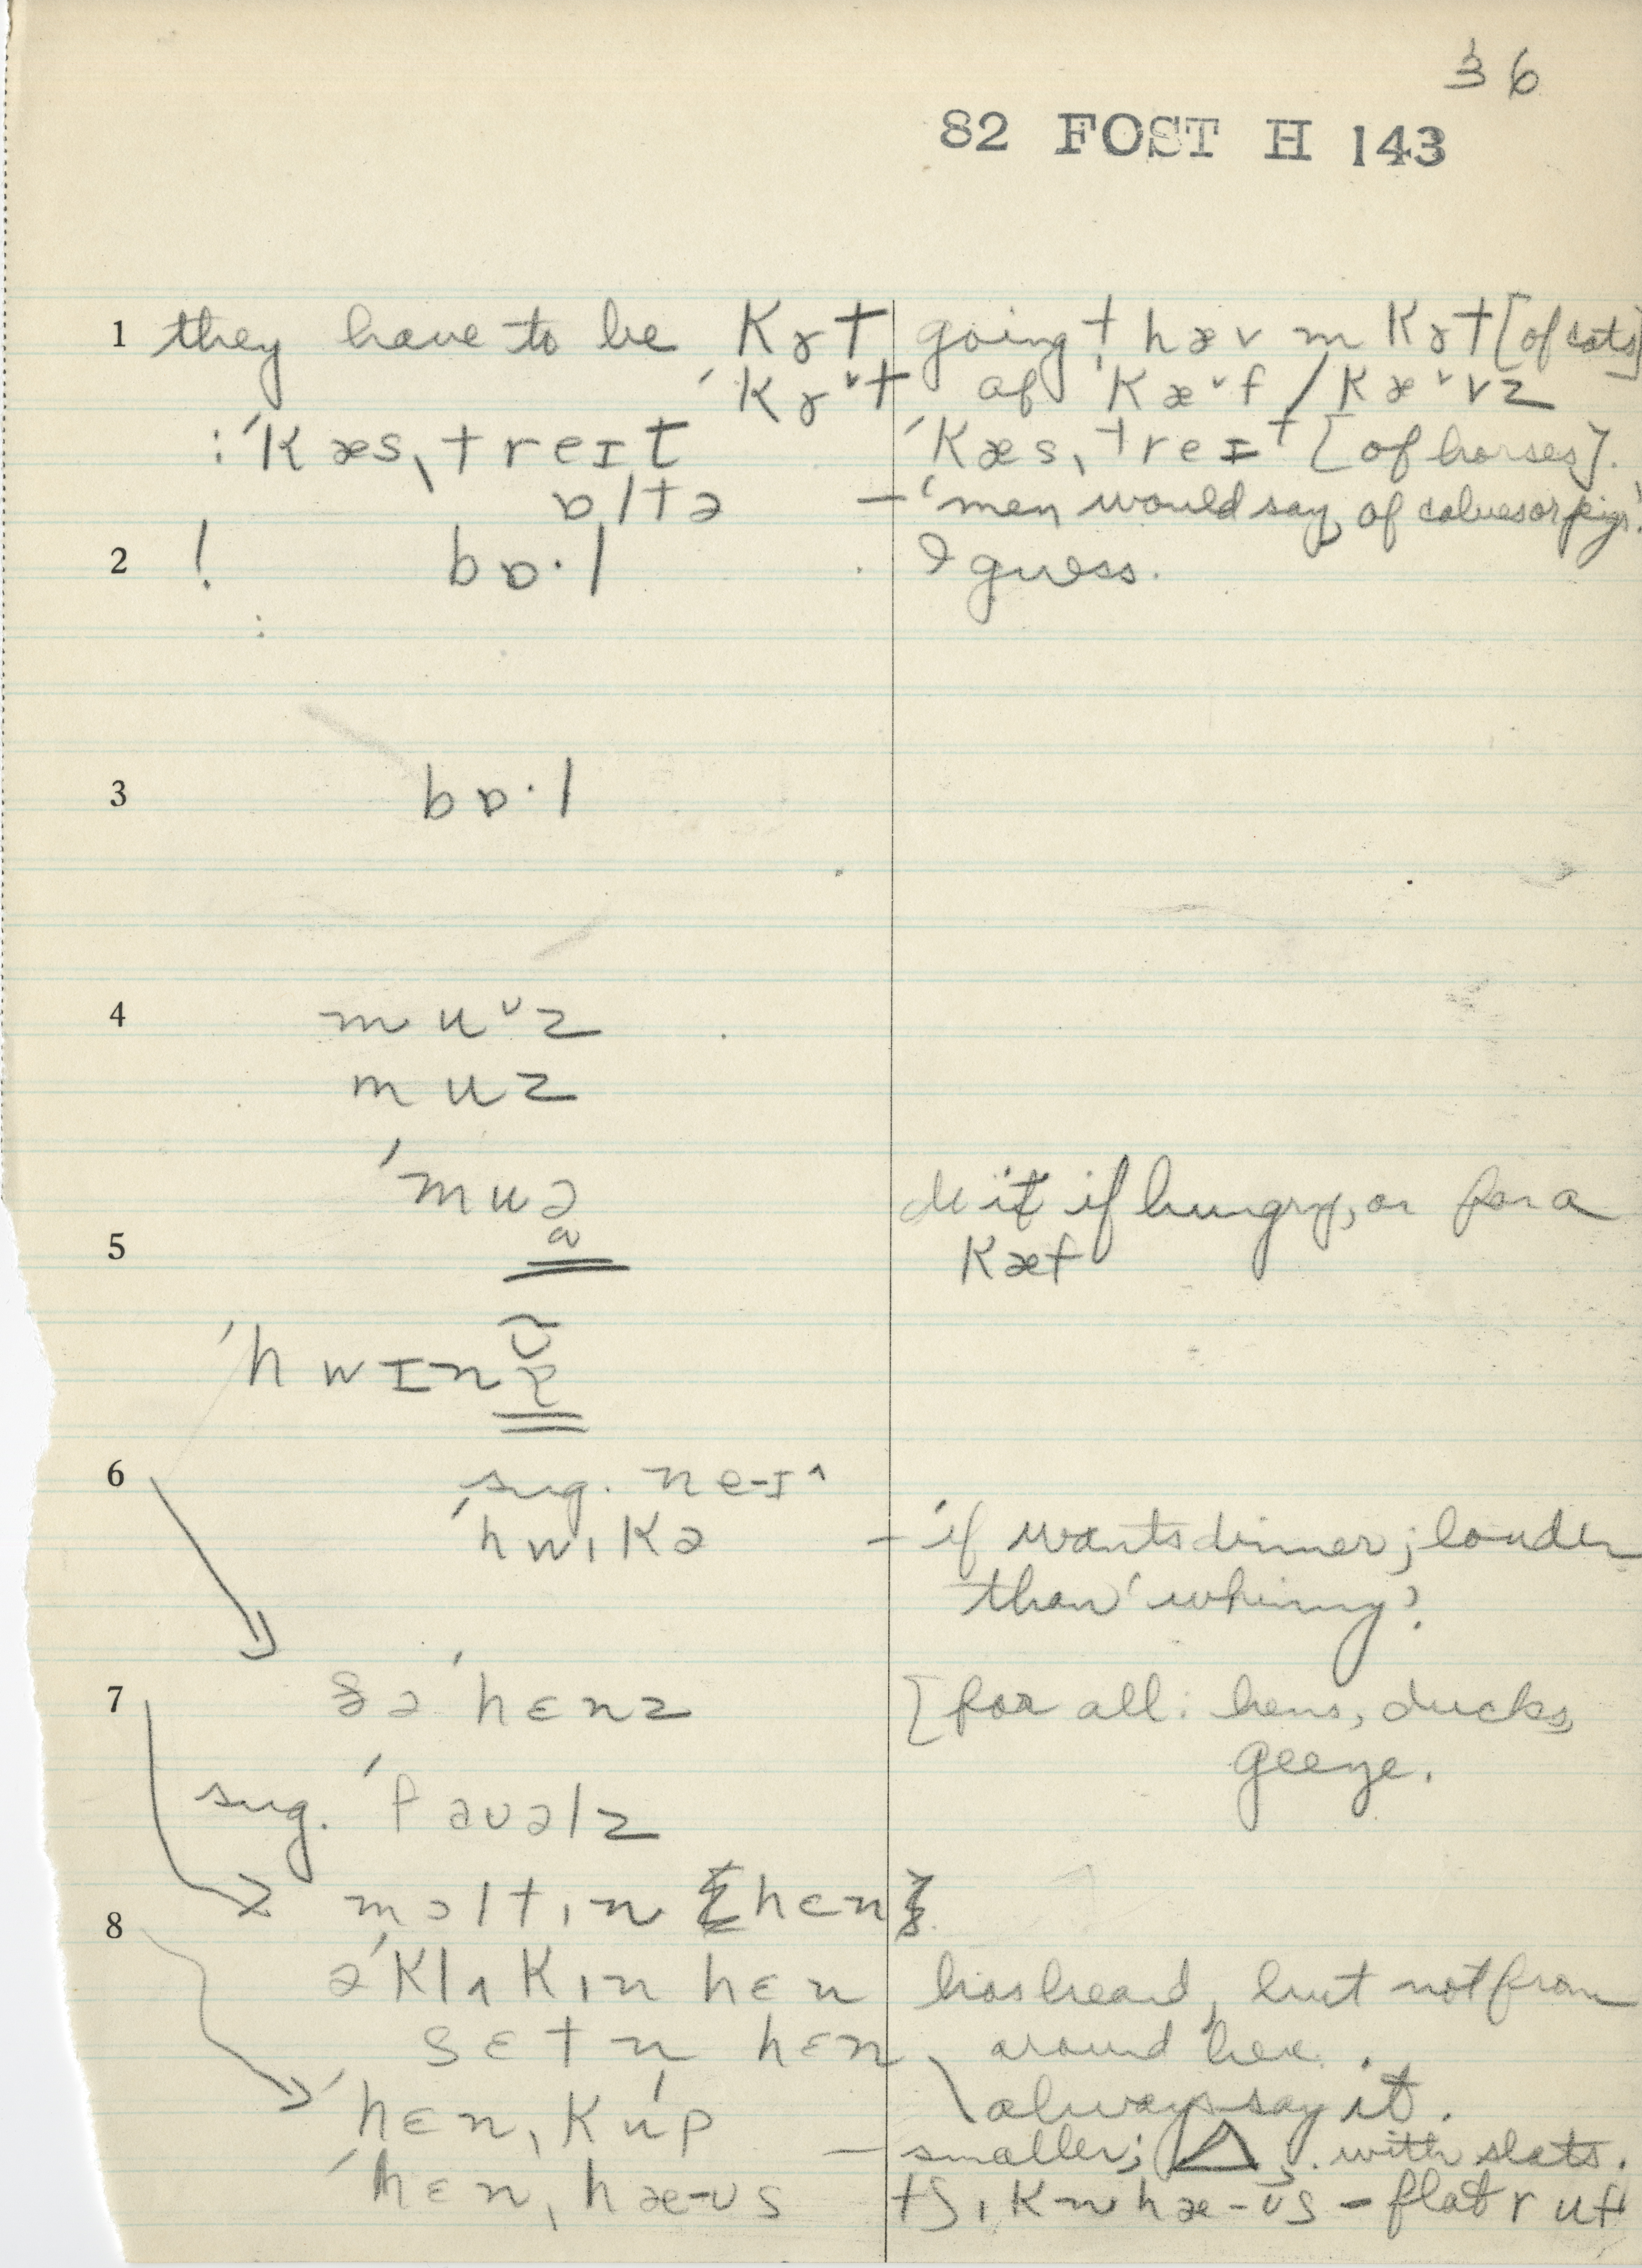 36
82 FOST H 143
1 they have to be Kɤt going t hæv m Kɤt [of cats]
ˈKɤˇt of Kæˇf / Kæˇvz
: ˈKæsˌtreɪt ˈKæsˌtreɪt [of horses].
ɒltə – ‘men would say, of calves or pigs’
2 ! bɒ·l . I guess.
:
3 bɒ·l
4 muˇz
muz
ˈmuə do it if hungry, or for a
5 Kæf
ˈhwɪn
6 sug. ne-ɪ^
ˈhwɪKə – ‘if wants dinner; louder
than ‘whinny’.
7 ðə ˈhɛnz [for all: hens, ducks,
geese.
sug. ˈfaʊəlz
moltɪn [hɛn]
8 ə ˈKlʌKɪn hɛn has heard, but not from
sɛtn hɛn around here.
always say it.
ˈhɛnˌKup
– smaller; △ . with slats.
ˈhɛnˌhæ-ʊs tʃɪKn hæ-ʊs – flat ruf